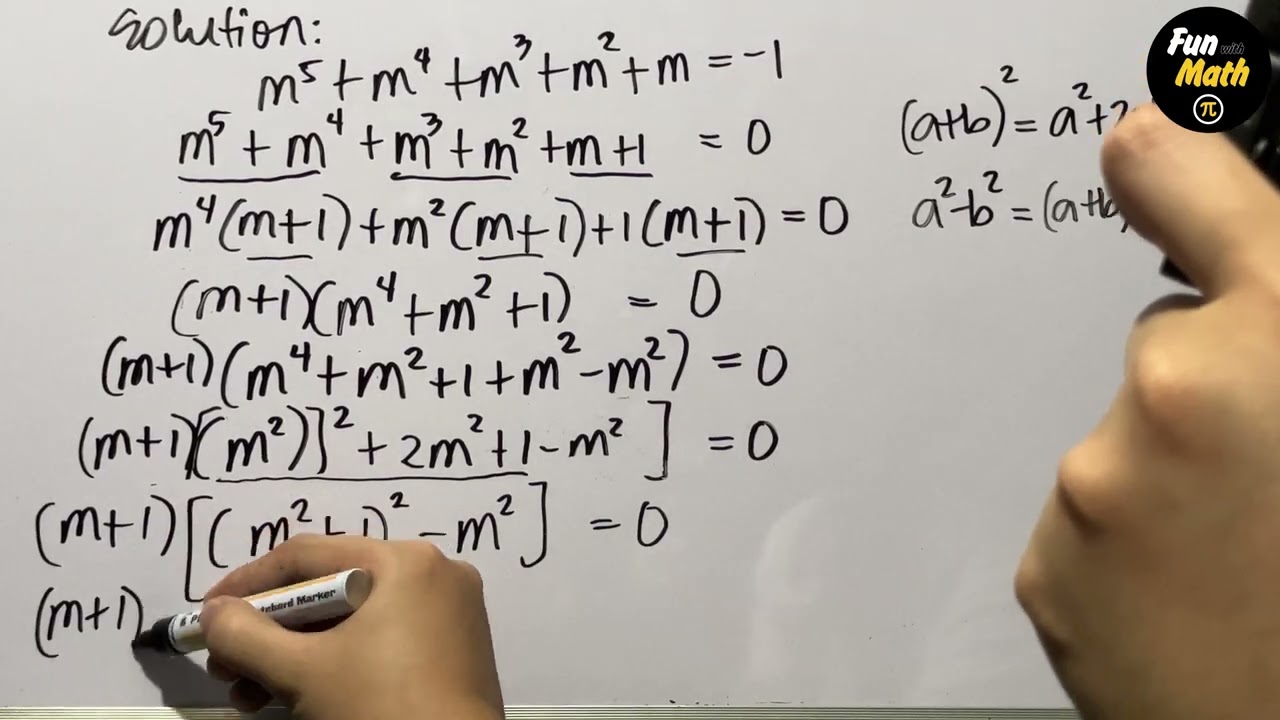 Solution:
m⁵ + m⁴ + m³ + m² + m = -1
m⁵ + m⁴ + m³ + m² + m + 1 = 0
m⁴(m+1) + m²(m+1) + 1(m+1) = 0
(m+1)(m⁴ + m² + 1) = 0
(m+1)(m⁴ + m² + 1 + m² - m²) = 0
(m+1)[(m²)]² + 2m² + 1 - m²] = 0
(m+1)[(m² + 1)² - m²] = 0
(m+1)
(a+b)² = a² + 2
a² - b² = (a+b)
Fun with
Math
π
Marker